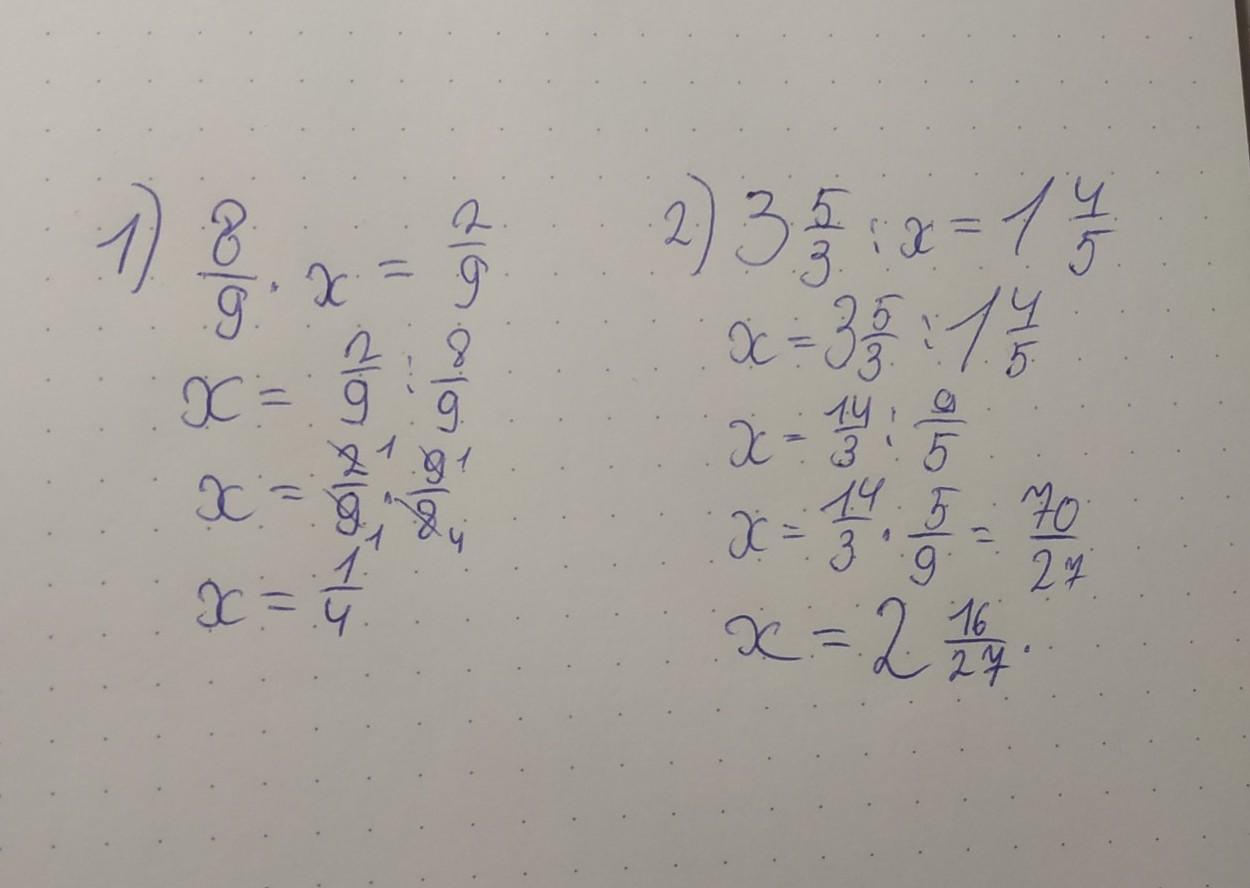 1) 8/9 · x = 2/9
x = 2/9 : 8/9
x = 2/9 · 9/8 1 1 1 4
x = 1/4
2) 3 5/3 : x = 1 4/5
x = 3 5/3 : 1 4/5
x = 14/3 : 9/5
x = 14/3 · 5/9 = 70/27
x = 2 16/27.